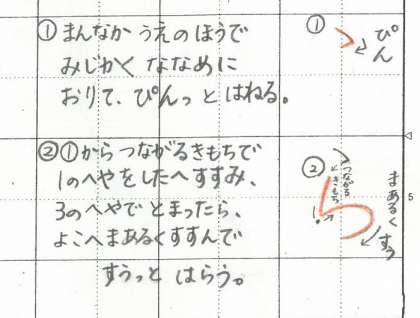 ①まんなか うえの ほうで
みじかく ななめに
おりて、ぴんっと はねる。
①
ぴん
②①からつながるきもちで
1のへやをしたへすすみ、
3のへやで とまったら、
よこへまあるくすすんで
すうっと はらう。
②
つながる
きもち
1.
まあるく
すぅ
5